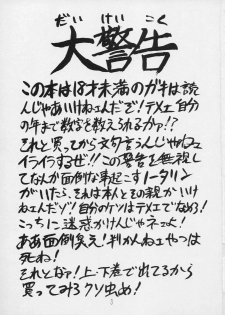 だいけいこく
大警告
この本は18才未満のガキは読
んじゃあいけねェんだぞ!テメェ自分
の年まで数字を数えられるかァ!?
それと買ってから文句言うんじゃねェ
イライラするぜ!!この警告を無視し
てなんか面倒な事起こすノータリン
がいたら、それは本人とその親がいけ
ねェんだゾ!自分のケツはテメエでなめろ!
こっちに迷惑かけんじゃネーよ!
ああ面倒臭え!判かんねェやつは
死ね!
それとなァ!上・下巻で出てるから
買ってみろクソ虫め!
3